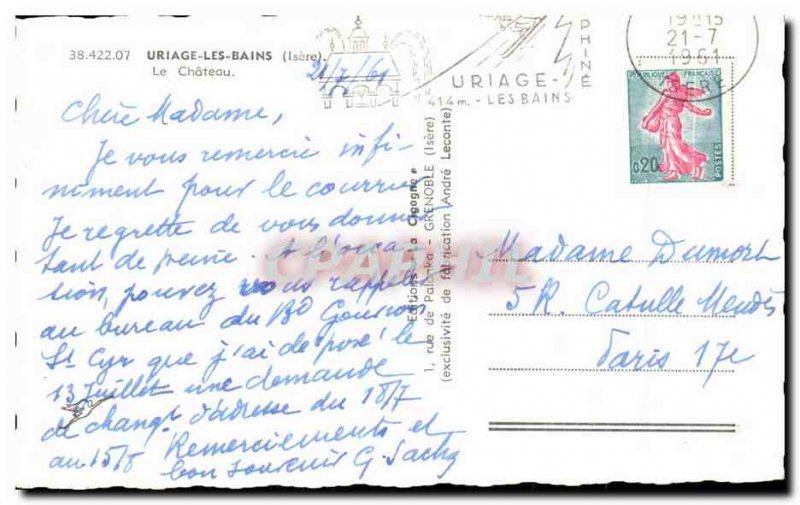 38.422.07 URIAGE-LES-BAINS (Isère).
Le Château.
21/7/61
Chère Madame,
Je vous remercie infi-
niment pour le courrier
Je regrette de vous donner
tant de peine. A l'occa-
tion, pouvez vous rappeler
au bureau du Bd Gouvion
St Cyr que j'ai deposé le
13 Juillet une demande
de changt d'adresse du 18/7
au 15/8 Remerciements et
bon souvenir G. Sachy
Editions "La Cigogne"
1, rue de Palanka - GRENOBLE (Isère)
(exclusivité de fabrication André Leconte)
CPARAMA
PHINÉ
URIAGE-
414 m. - LES BAINS
19H15
21-7
1961
ISERE
REPUBLIQUE FRANÇAISE
0,20
POSTES
Madame Dumort
5 R. Catulle Mendès
Paris 17e